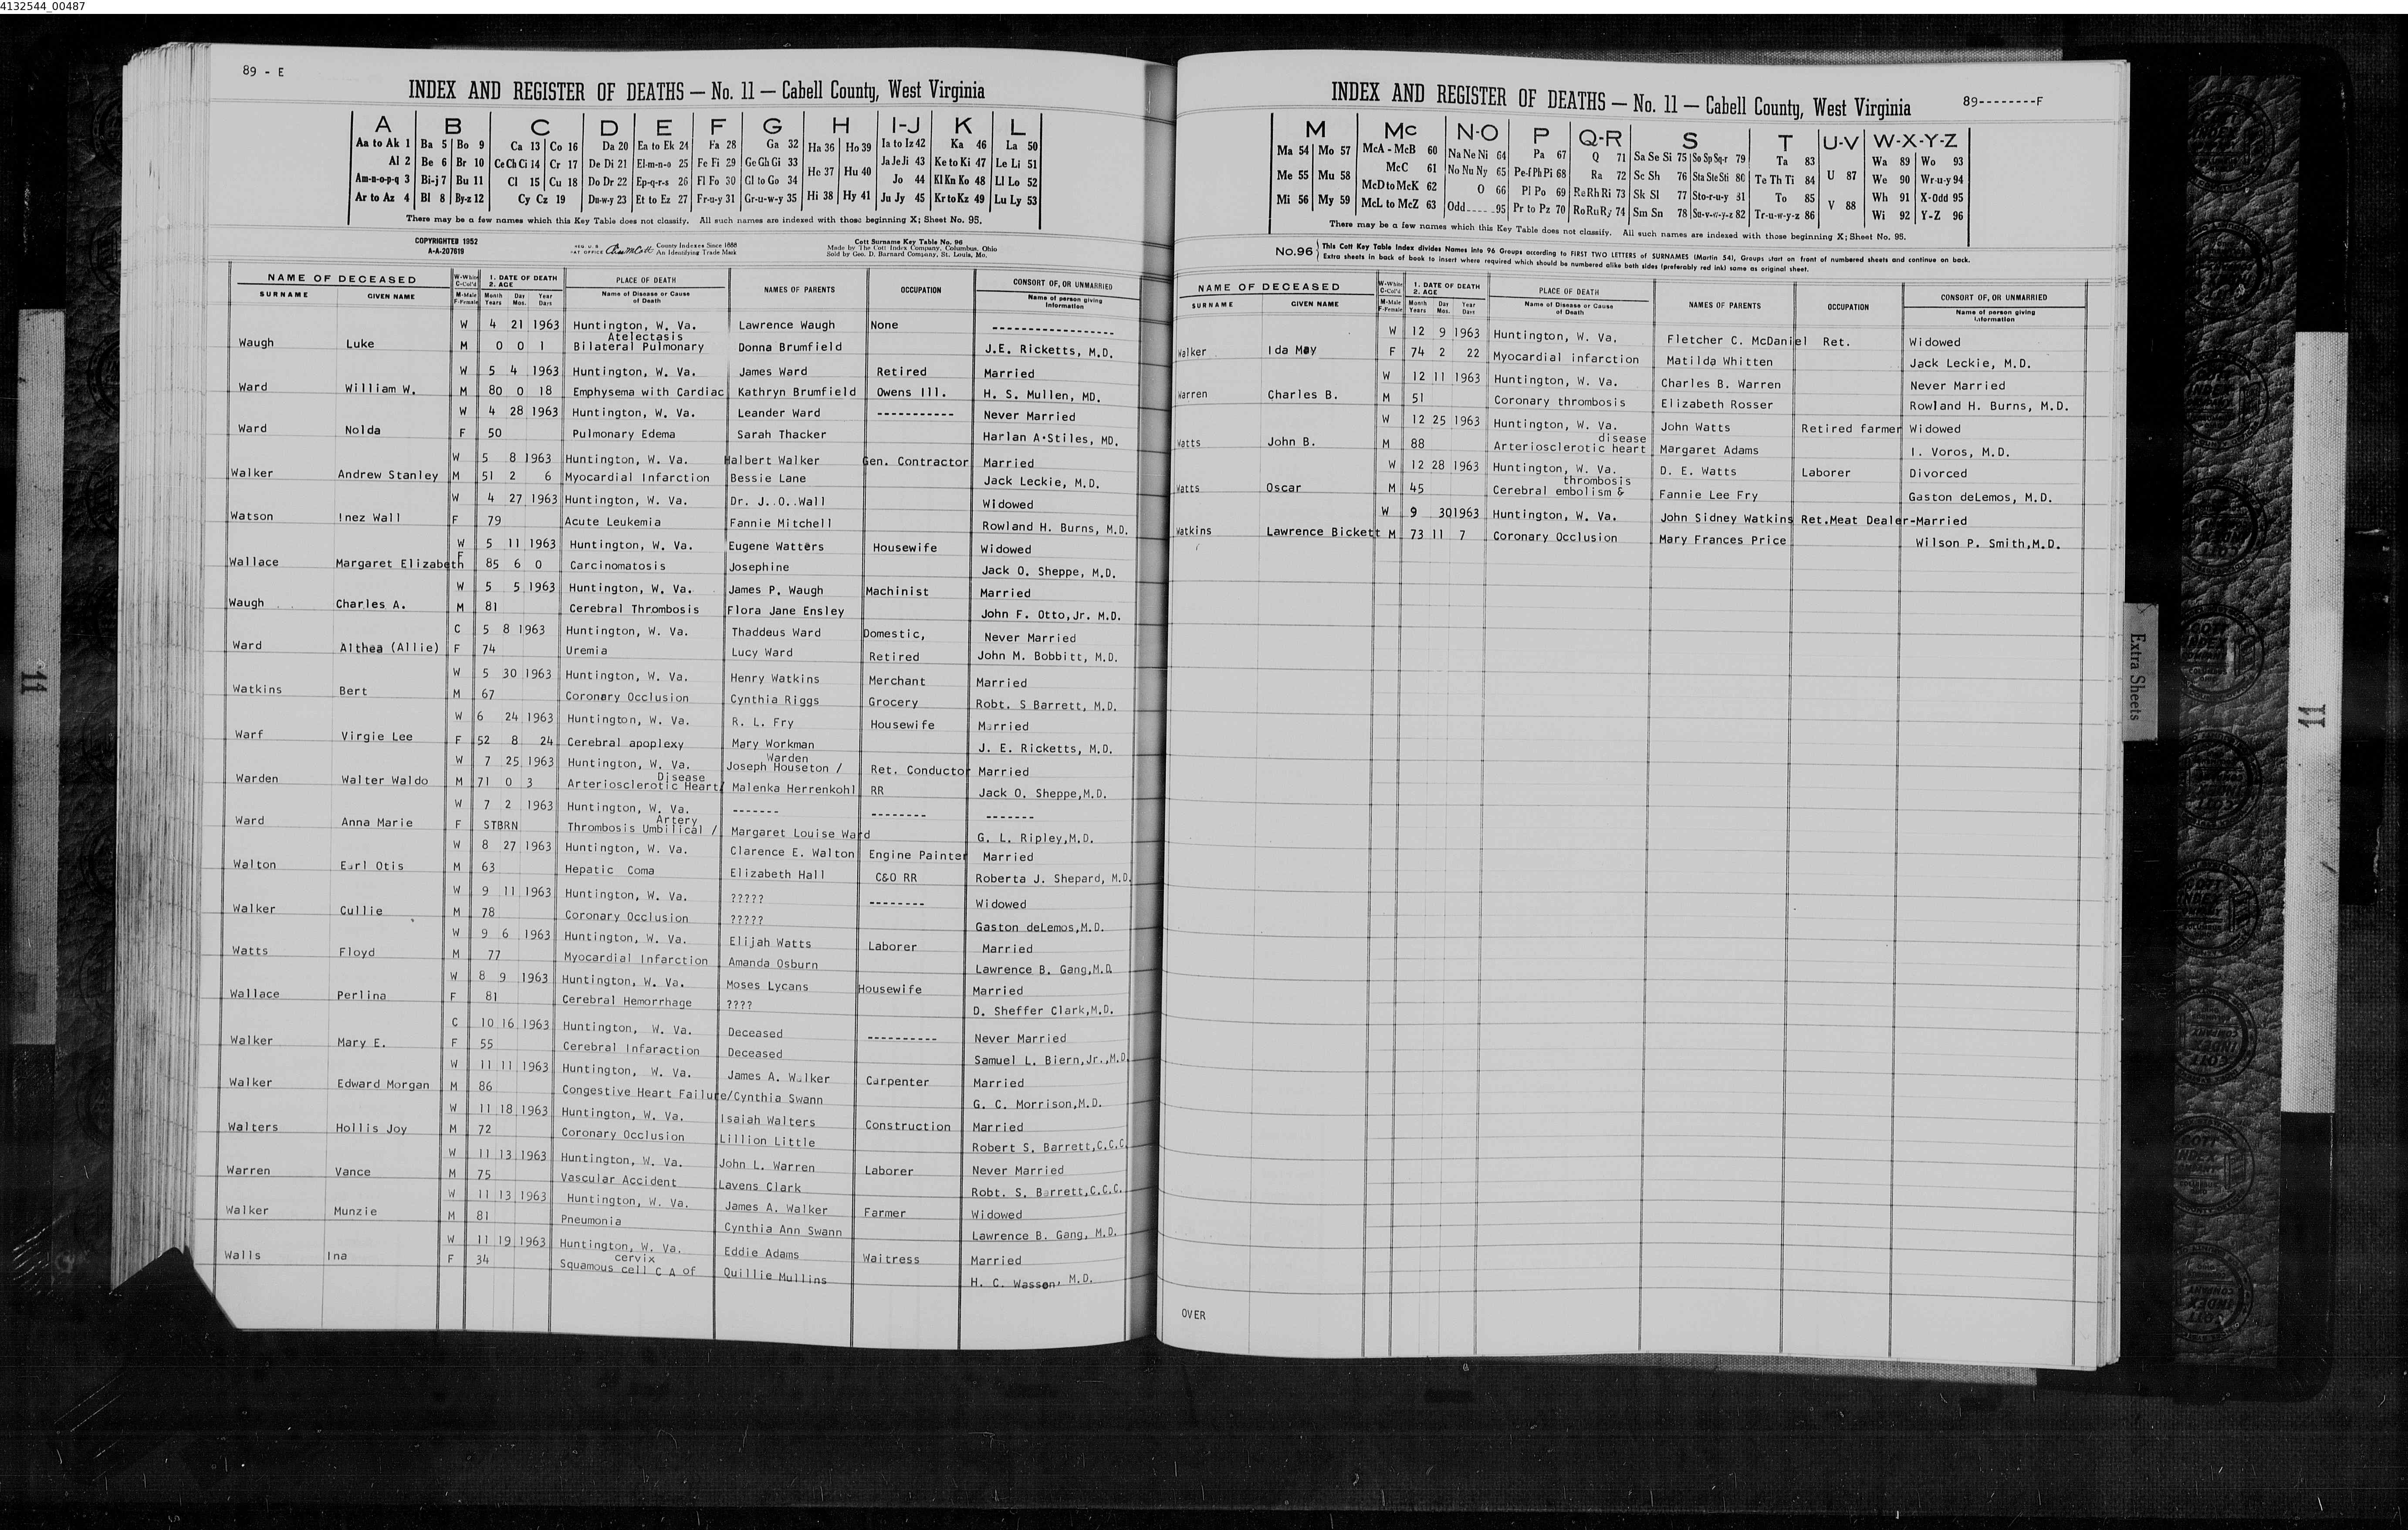 4132544_00487
89 - E
INDEX AND REGISTER OF DEATHS — No. 11 — Cabell County, West Virginia
A B C D E F G H I-J K L
Aa to Ak 1 Ba 5 Bo 9 Ca 13 Co 16 Da 20 Ea to Ek 24 Fa 28 Ga 32 Ha 36 Ho 39 Ia to Iz 42 Ka 46 La 50
Al 2 Be 6 Br 10 Ce Ch Ci 14 Cr 17 De Di 21 El-m-n-o 25 Fe Fi 29 Ge Gh Gi 33 He 37 Hu 40 Ja Je Ji 43 Ke to Ki 47 Le Li 51
Am-n-o-p-q 3 Bi-j 7 Bu 11 Cl 15 Cu 18 Do Dr 22 Ep-q-r-s 26 Fl Fo 30 Gl to Go 34 Jo 44 Kl Kn Ko 48 Ll Lo 52
Ar to Az 4 Bl 8 By-z 12 Cy Cz 19 Du-w-y 23 Et to Ez 27 Fr-u-y 31 Gr-u-w-y 35 Hi 38 Hy 41 Ju Jy 45 Kr to Kz 49 Lu Ly 53
There may be a few names which this Key Table does not classify. All such names are indexed with those beginning X; Sheet No. 95.
COPYRIGHTED 1952
A-A-207619
County Indexes Since 1888
An Identifying Trade Mark
Cott Surname Key Table No. 96
Made by The Cott Index Company, Columbus, Ohio
Sold by Geo. D. Barnard Company, St. Louis, Mo.
NAME OF DECEASED W-White C-Col'd 1. DATE OF DEATH 2. AGE PLACE OF DEATH NAMES OF PARENTS OCCUPATION CONSORT OF, OR UNMARRIED
SURNAME GIVEN NAME M-Male F-Female Month Years Day Mos. Year Days Name of Disease or Cause of Death Name of person giving Information
W 4 21 1963 Huntington, W. Va. Lawrence Waugh None ------------------
Atelectasis
Waugh Luke M 0 0 1 Bilateral Pulmonary Donna Brumfield J.E. Ricketts, M.D.
W 5 4 1963 Huntington, W. Va. James Ward Retired Married
Ward William W. M 80 0 18 Emphysema with Cardiac Kathryn Brumfield Owens Ill. H. S. Mullen, MD.
W 4 28 1963 Huntington, W. Va. Leander Ward ----------- Never Married
Ward Nolda F 50 Pulmonary Edema Sarah Thacker Harlan A.Stiles, MD.
W 5 8 1963 Huntington, W. Va. Halbert Walker Gen. Contractor Married
Walker Andrew Stanley M 51 2 6 Myocardial Infarction Bessie Lane Jack Leckie, M.D.
W 4 27 1963 Huntington, W. Va. Dr. J..O..Wall Widowed
Watson Inez Wall F 79 Acute Leukemia Fannie Mitchell Rowland H. Burns, M.D.
W 5 11 1963 Huntington, W. Va. Eugene Watters Housewife Widowed
Wallace Margaret Elizabeth F 85 6 0 Carcinomatosis Josephine Jack O. Sheppe, M.D.
W 5 5 1963 Huntington, W. Va. James P. Waugh Machinist Married
Waugh Charles A. M 81 Cerebral Thrombosis Flora Jane Ensley John F. Otto,Jr. M.D.
C 5 8 1963 Huntington, W. Va. Thaddeus Ward Domestic, Never Married
Ward Althea (Allie) F 74 Uremia Lucy Ward Retired John M. Bobbitt, M.D.
W 5 30 1963 Huntington, W. Va. Henry Watkins Merchant Married
Watkins Bert M 67 Coronary Occlusion Cynthia Riggs Grocery Robt. S Barrett, M.D.
W 6 24 1963 Huntington, W. Va. R. L. Fry Housewife Married
Warf Virgie Lee F 52 8 24 Cerebral apoplexy Mary Workman J. E. Ricketts, M.D.
Warden
W 7 25 1963 Huntington, W. Va. Joseph Houseton / Ret. Conductor Married
Disease
Warden Walter Waldo M 71 0 3 Arteriosclerotic Heart/ Malenka Herrenkohl RR Jack O. Sheppe,M.D.
W 7 2 1963 Huntington, W. Va. ------- -------- -------
Artery
Ward Anna Marie F STBRN Thrombosis Umbilical / Margaret Louise Ward G. L. Ripley,M.D.
W 8 27 1963 Huntington, W. Va. Clarence E. Walton Engine Painter Married
Walton Earl Otis M 63 Hepatic Coma Elizabeth Hall C&O RR Roberta J. Shepard, M.D.
W 9 11 1963 Huntington, W. Va. ????? -------- Widowed
Walker Cullie M 78 Coronary Occlusion ????? Gaston deLemos,M.D.
W 9 6 1963 Huntington, W. Va. Elijah Watts Laborer Married
Watts Floyd M 77 Myocardial Infarction Amanda Osburn Lawrence B. Gang,M.D.
W 8 9 1963 Huntington, W. Va. Moses Lycans Housewife Married
Wallace Perlina F 81 Cerebral Hemorrhage ???? D. Sheffer Clark,M.D.
C 10 16 1963 Huntington, W. Va. Deceased ---------- Never Married
Walker Mary E. F 55 Cerebral Infaraction Deceased Samuel L. Biern,Jr.,M.D.
W 11 11 1963 Huntington, W. Va. James A. Walker Carpenter Married
Walker Edward Morgan M 86 Congestive Heart Failure/Cynthia Swann G. C. Morrison,M.D.
W 11 18 1963 Huntington, W. Va. Isaiah Walters Construction Married
Walters Hollis Joy M 72 Coronary Occlusion Lillion Little Robert S. Barrett,C.C.C.
W 11 13 1963 Huntington, W. Va. John L. Warren Laborer Never Married
Warren Vance M 75 Vascular Accident Lavens Clark Robt. S. Barrett,C.C.C.
W 11 13 1963 Huntington, W. Va. James A. Walker Farmer Widowed
Walker Munzie M 81 Pneumonia Cynthia Ann Swann Lawrence B. Gang, M.D.
W 11 19 1963 Huntington, W. Va. Eddie Adams Waitress Married
cervix
Walls Ina F 34 Squamous cell C A of Quillie Mullins H. C. Wasson, M.D.
INDEX AND REGISTER OF DEATHS — No. 11 — Cabell County, West Virginia
89--------F
M Mc N-O P Q-R S T U-V W-X-Y-Z
Ma 54 Mo 57 McA - McB 60 Na Ne Ni 64 Pa 67 Q 71 Sa Se Si 75 So Sp Sq-r 79 Ta 83 Wa 89 Wo 93
Me 55 Mu 58 McC 61 No Nu Ny 65 Pe-f Ph Pi 68 Ra 72 Sc Sh 76 Sta Ste Sti 80 Te Th Ti 84 U 87 We 90 Wr-u-y 94
McD to McK 62 O 66 Pl Po 69 Re Rh Ri 73 Sk Sl 77 Sto-r-u-y 81 To 85 Wh 91 X-Odd 95
Mi 56 My 59 McL to McZ 63 Odd-----95 Pr to Pz 70 Ro Ru Ry 74 Sm Sn 78 Su-v-w-y-z 82 Tr-u-w-y-z 86 V 88 Wi 92 Y-Z 96
There may be a few names which this Key Table does not classify. All such names are indexed with those beginning X; Sheet No. 95.
No.96 This Cott Key Table Index divides Names into 96 Groups according to FIRST TWO LETTERS of SURNAMES (Martin 54), Groups start on front of numbered sheets and continue on back.
Extra sheets in back of book to insert where required which should be numbered alike both sides (preferably red ink) same as original sheet.
NAME OF DECEASED W-White C-Col'd 1. DATE OF DEATH 2. AGE PLACE OF DEATH NAMES OF PARENTS OCCUPATION CONSORT OF, OR UNMARRIED
SURNAME GIVEN NAME M-Male F-Female Month Years Day Mos. Year Days Name of Disease or Cause of Death Name of person giving Information
W 12 9 1963 Huntington, W. Va. Fletcher C. McDaniel Ret. Widowed
Walker Ida May F 74 2 22 Myocardial infarction Matilda Whitten Jack Leckie, M.D.
W 12 11 1963 Huntington, W. Va. Charles B. Warren Never Married
Warren Charles B. M 51 Coronary thrombosis Elizabeth Rosser Rowland H. Burns, M.D.
W 12 25 1963 Huntington, W. Va. John Watts Retired farmer Widowed
disease
Watts John B. M 88 Arteriosclerotic heart Margaret Adams I. Voros, M.D.
W 12 28 1963 Huntington, W. Va. D. E. Watts Laborer Divorced
thrombosis
Watts Oscar M 45 Cerebral embolism & Fannie Lee Fry Gaston deLemos, M.D.
W 9 30 1963 Huntington, W. Va. John Sidney Watkins Ret.Meat Dealer-Married
Watkins Lawrence Bickett M 73 11 7 Coronary Occlusion Mary Frances Price Wilson P. Smith,M.D.
OVER
Extra Sheets
11
11